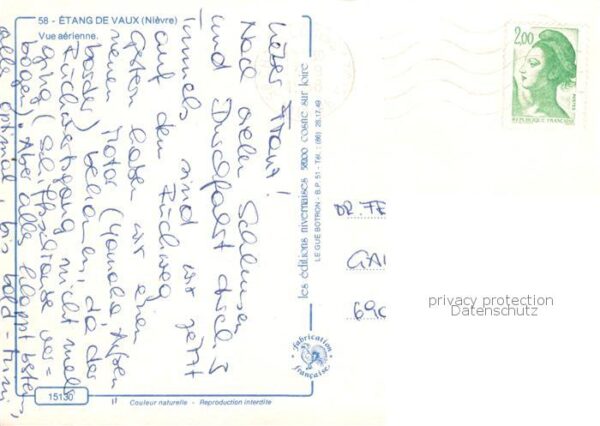 58 - ÉTANG DE VAUX (Nièvre)
Vue aérienne.
2,00
RÉPUBLIQUE FRANÇAISE
Liebes !
Nach vielen Schleusen
und
sind wir jetzt
auf dem Rückweg
Gestern haben wir einen
neuen Motor (Yamaha Außen=
border) bekommen, da der
Rückwärtsgang nicht mehr
ging (Schiffsschraube ver=
bogen). Aber alles klappt bestens
alles optimal, bis bald -
les éditions nivernaises 58200 cosne sur loire
LE GUÉ BOTRON - B.P 51 - Tél. : (86) 28.17.49
DR. FE
GAI
690
privacy protection
Datenschutz
Fabrication
française
15130
Couleur naturelle - Reproduction interdite